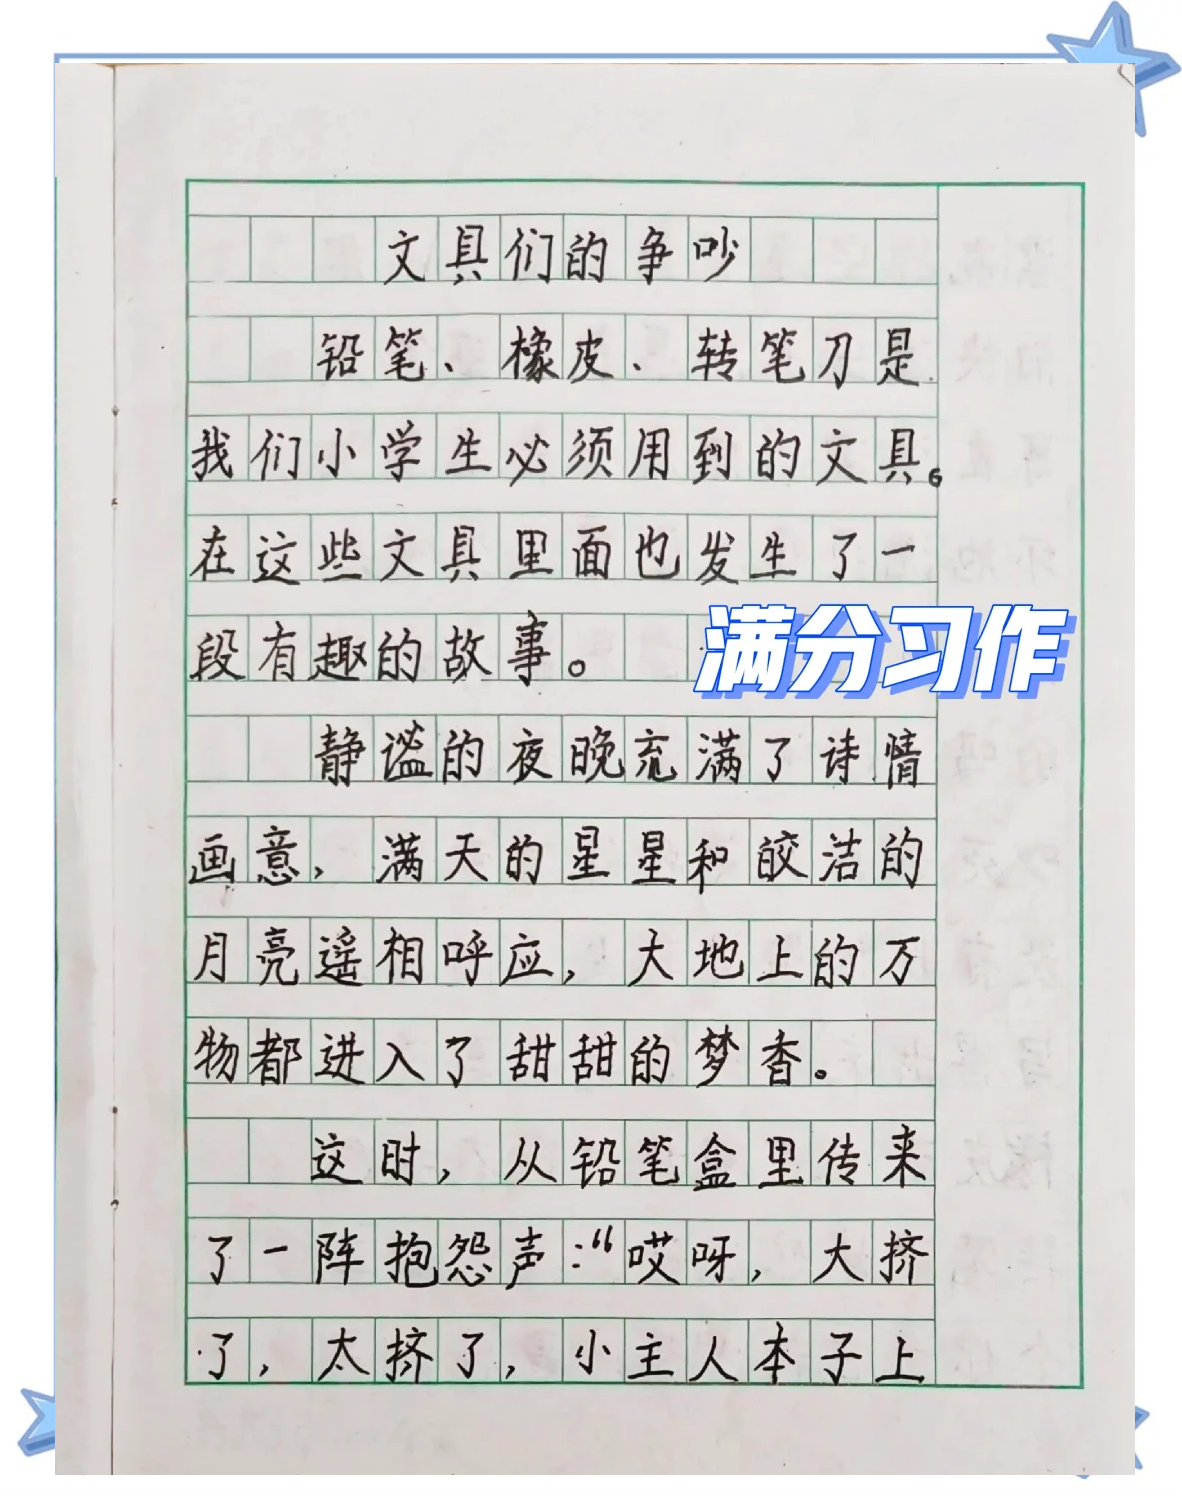 文具们的争吵
铅笔、橡皮、转笔刀是
我们小学生必须用到的文具。
在这些文具里面也发生了一
段有趣的故事。
满分习作
静谧的夜晚充满了诗情
画意，满天的星星和皎洁的
月亮遥相呼应，大地上的万
物都进入了甜甜的梦香。
这时，从铅笔盒里传来
了一阵抱怨声：“哎呀，大挤
了，太挤了，小主人本子上